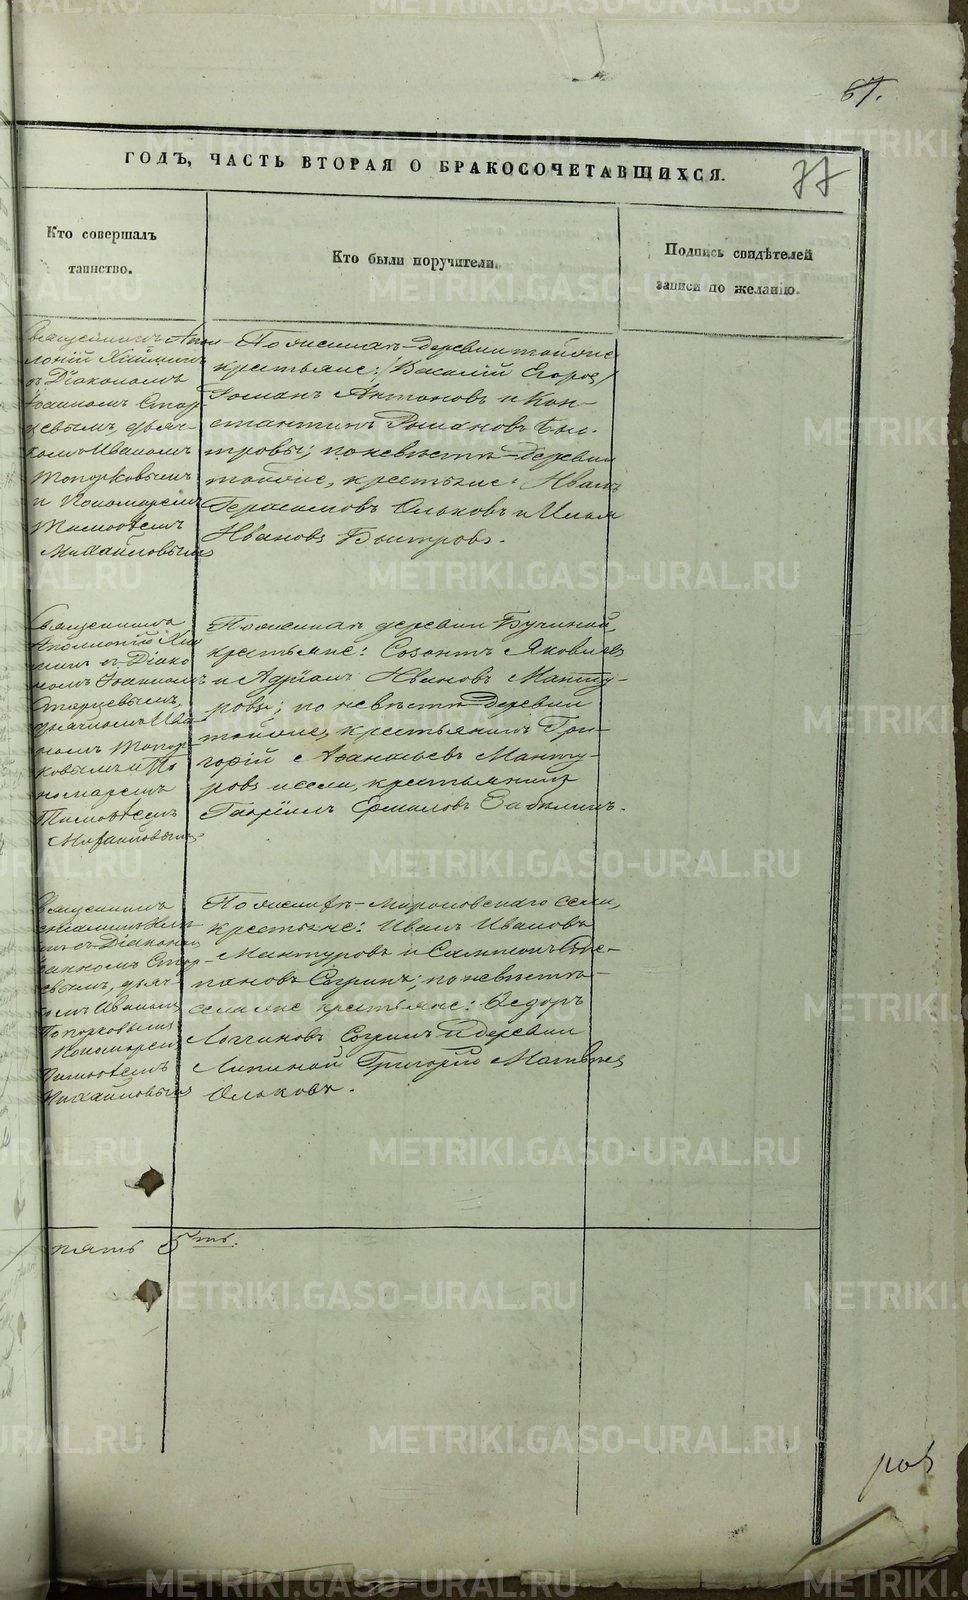 67.
ГОДЪ, ЧАСТЬ ВТОРАЯ О БРАКОСОЧЕТАВШИХСЯ.
77
Кто совершалъ
таинство.
Кто были поручители.
Подпись свидѣтелей
записи по желанію.
Священникъ Апол-
лоній Хаймин
съ Діакономъ
Іоанномъ Стар-
цевымъ, дьяч-
комъ Иваномъ
Топорковымъ
и Пономаремъ
Тимоѳеемъ
Михайловымъ
По женихѣ деревни тойже
крестьяне: Василій Егоров,
Романъ Антоновъ и Кон-
стантинъ Романовъ Быст-
тровы; по невѣстѣ деревни
тойже, крестьяне: Иванъ
Герасимовъ Ольковъ и Илья
Ивановъ Быстровъ.
Священникъ
Аполлоній Хай
минъ съ Діако
номъ Іоанномъ
Старцевымъ,
дьячкомъ Ива
номъ Топор-
ковымъ и По
номаремъ
Тимоѳеемъ
Михайловымъ
По женихѣ деревни Бучиной,
крестьяне: Созонтъ Яковлевъ
и Адріанъ Ивановъ Манту-
ровы; по невѣстѣ деревни
тойже, крестьянинъ Гри-
горій Аѳанасьевъ Манту-
ровъ и села, крестьянинъ
Гавріилъ Ермиловъ Забѣлинъ.
Священникъ
съ Діакономъ
Іоанномъ Стар-
цевымъ, дьяч-
комъ Иваномъ
Топорковымъ
Пономаремъ
Тимоѳеемъ
Михайловымъ
По женихѣ Мироновскаго села,
крестьяне: Иванъ Ивановъ
Мантуровъ и Сампсонъ Сте-
пановъ Согринъ; по невѣстѣ
села же крестьяне: Ѳедоръ
Логгиновъ Согринъ и деревни
Липиной Григорій Матвѣевъ
Ольковъ.
пять 5ть.
METRIKI.GASO-URAL.RU